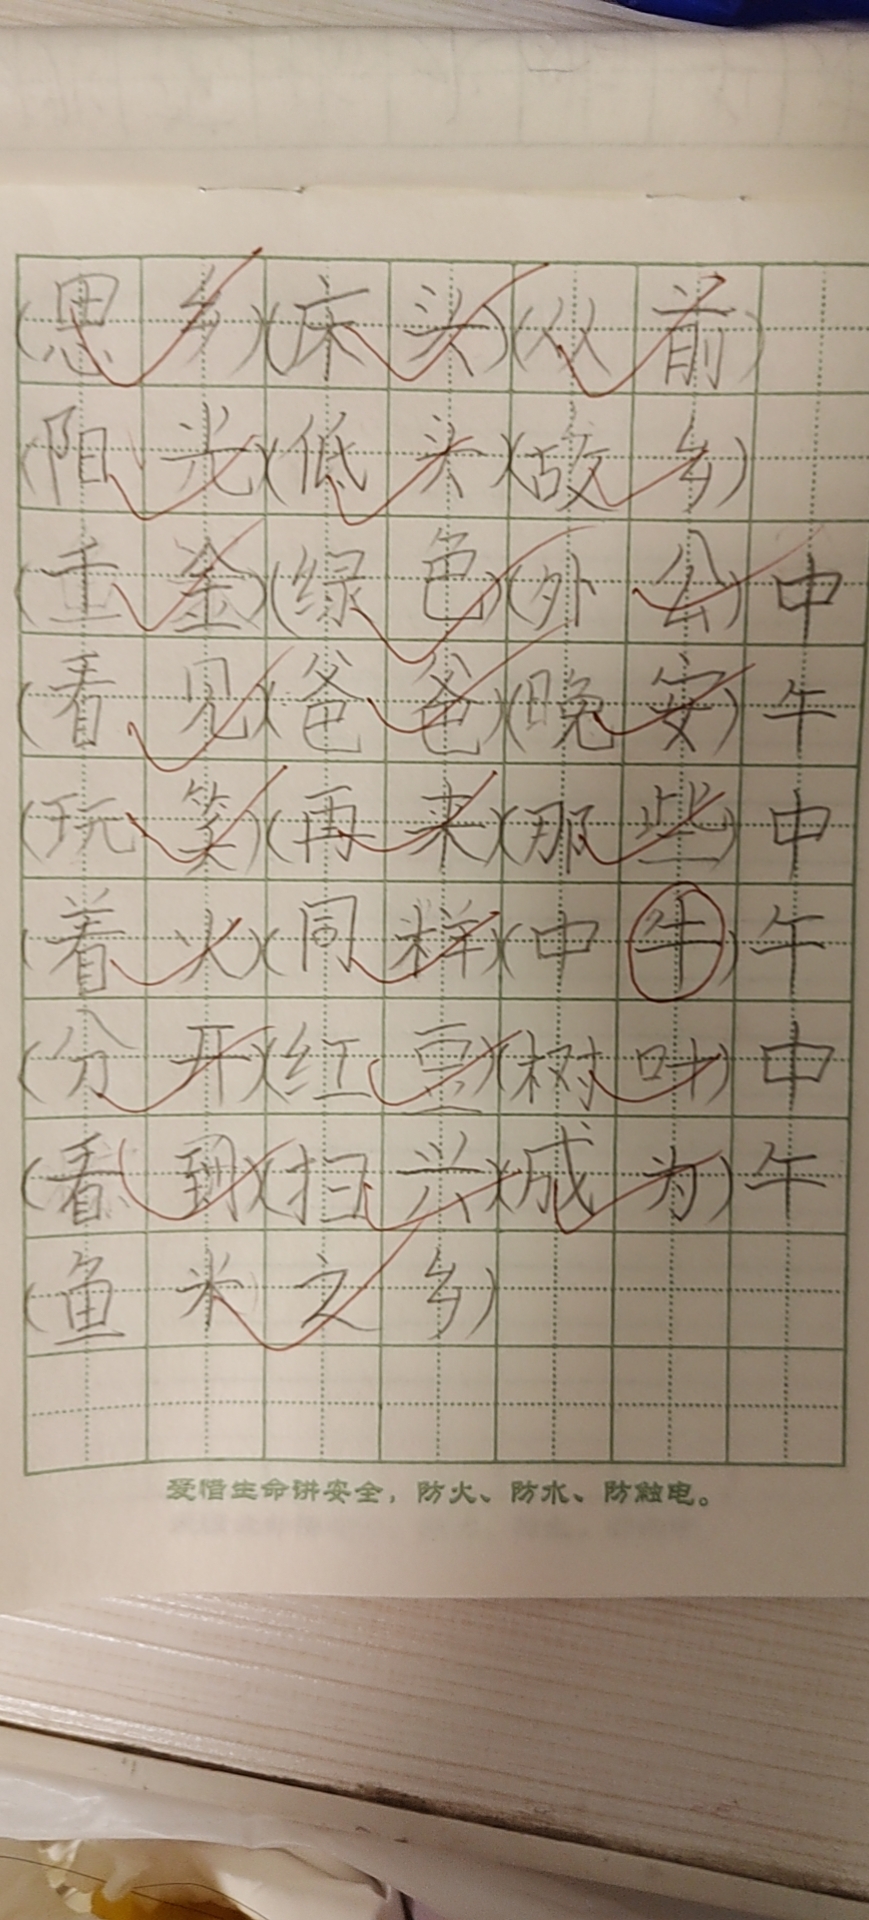 (思乡)(床头)(从前)
(阳光)(低头)(故乡)
(重金)(绿色)(外公)中
(看见)(爸爸)(晚安)午
(玩笑)(再来)(那些)中
(着火)(同样)(中牛)午
(分开)(红豆)(树叶)中
(看到)(扫兴)(成为)午
(鱼米之乡)
爱惜生命讲安全，防火、防水、防触电。